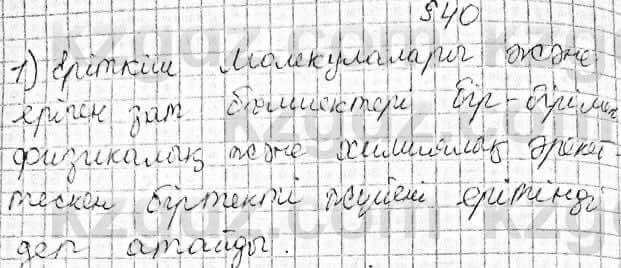 §40
1) Еріткіш молекулалары және
еріген зат бөлшектері бір-бірімен
физикалық және химиялық әрекет
тескен біртекті жүйені ерітінді
деп атайды.